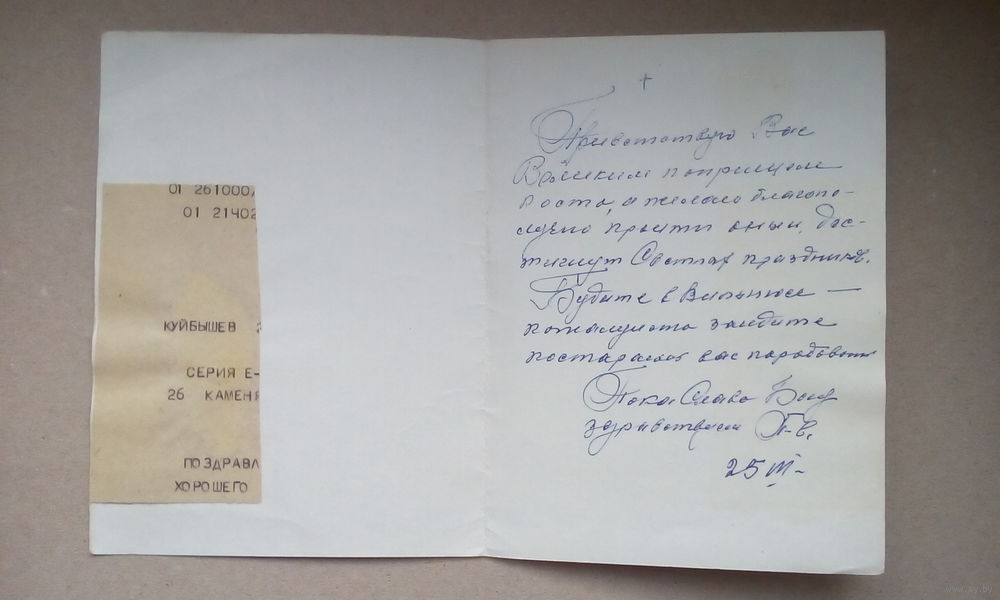 01 261000,
01 21402
КУЙБЫШЕВ
СЕРИЯ Е-
26 КАМЕНЯ
ПОЗДРАВЛ
ХОРОШЕГО
†
Приветствую Вас
Великим поприщем
поста, и желаю благопо-
лучно пройти оный, дос-
тигнут Светлых праздников.
Будите в Вильнюсе —
пожалуйста заидите
постараемся вас порадовать
Пока Слава Богу
здравствуем П-в.
25 III-